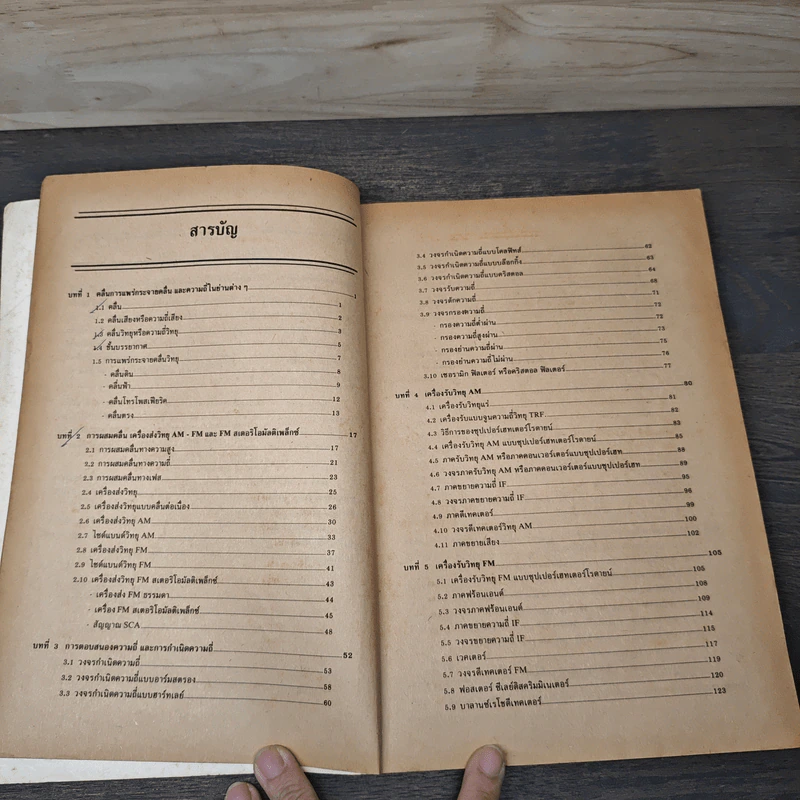 สารบัญ
บทที่ 1 คลื่นการแพร่กระจายคลื่น และความถี่ในย่านต่าง ๆ 1
1.1 คลื่น 1
1.2 คลื่นเสียงหรือความถี่เสียง 2
1.3 คลื่นวิทยุหรือความถี่วิทยุ 3
1.4 ชั้นบรรยากาศ 5
1.5 การแพร่กระจายคลื่นวิทยุ 7
- คลื่นดิน 8
- คลื่นฟ้า 9
- คลื่นโทรโพสเฟียริค 12
- คลื่นตรง 13
บทที่ 2 การผสมคลื่น เครื่องส่งวิทยุ AM - FM และ FM สเตอริโอมัลติเพล็กซ์ 17
2.1 การผสมคลื่นทางความสูง 17
2.2 การผสมคลื่นทางความถี่ 21
2.3 การผสมคลื่นทางเฟส 23
2.4 เครื่องส่งวิทยุ 25
2.5 เครื่องส่งวิทยุแบบคลื่นต่อเนื่อง 26
2.6 เครื่องส่งวิทยุ AM 30
2.7 ไซด์แบนด์วิทยุ AM 33
2.8 เครื่องส่งวิทยุ FM 37
2.9 ไซด์แบนด์วิทยุ FM 41
2.10 เครื่องส่งวิทยุ FM สเตอริโอมัลติเพล็กซ์ 43
- เครื่องส่ง FM ธรรมดา 44
- เครื่อง FM สเตอริโอมัลติเพล็กซ์ 45
- สัญญาณ SCA 48
บทที่ 3 การตอบสนองความถี่ และการกำเนิดความถี่ 52
3.1 วงจรกำเนิดความถี่ 53
3.2 วงจรกำเนิดความถี่แบบอาร์มสตรอง 58
3.3 วงจรกำเนิดความถี่แบบฮาร์ทเลย์ 60
3.4 วงจรกำเนิดความถี่แบบโคลพิทส์ 62
3.5 วงจรกำเนิดความถี่แบบบล๊อกกิ้ง 63
3.6 วงจรกำเนิดความถี่แบบคริสตอล 64
3.7 วงจรรับความถี่ 68
3.8 วงจรดักความถี่ 71
3.9 วงจรกรองความถี่ 72
- กรองความถี่ต่ำผ่าน 72
- กรองความถี่สูงผ่าน 73
- กรองย่านความถี่ผ่าน 75
- กรองย่านความถี่ไม่ผ่าน 76
3.10 เซอรามิก ฟิลเตอร์ หรือคริสตอล ฟิลเตอร์ 77
บทที่ 4 เครื่องรับวิทยุ AM 80
4.1 เครื่องรับวิทยุแร่ 81
4.2 เครื่องรับแบบจูนความถี่วิทยุ TRF 82
4.3 วิธีการของซุปเปอร์เฮทเตอร์โรดายน์ 83
4.4 เครื่องรับวิทยุ AM แบบซุปเปอร์เฮทเตอร์โรดายน์ 85
4.5 ภาครับวิทยุ AM หรือภาคคอนเวอร์เตอร์แบบซุปเปอร์เฮท 88
4.6 วงจรภาครับวิทยุ AM หรือภาคคอนเวอร์เตอร์แบบซุปเปอร์เฮท 89
4.7 ภาคขยายความถี่ IF 95
4.8 วงจรภาคขยายความถี่ IF 96
4.9 ภาคดีเทคเตอร์ 99
4.10 วงจรดีเทคเตอร์วิทยุ AM 100
4.11 ภาคขยายเสียง 102
บทที่ 5 เครื่องรับวิทยุ FM 105
5.1 เครื่องรับวิทยุ FM แบบซุปเปอร์เฮทเตอร์โรดายน์ 105
5.2 ภาคฟร้อนเอนด์ 108
5.3 วงจรภาคฟร้อนเอนด์ 109
5.4 ภาคขยายความถี่ IF 114
5.5 วงจรขยายความถี่ IF 115
5.6 เวคเตอร์ 117
5.7 วงจรดีเทคเตอร์ FM 119
5.8 ฟอสเตอร์ ซีเลย์ดิสคริมมิเนเตอร์ 120
5.9 บาลานซ์เรโชดีเทคเตอร์ 123